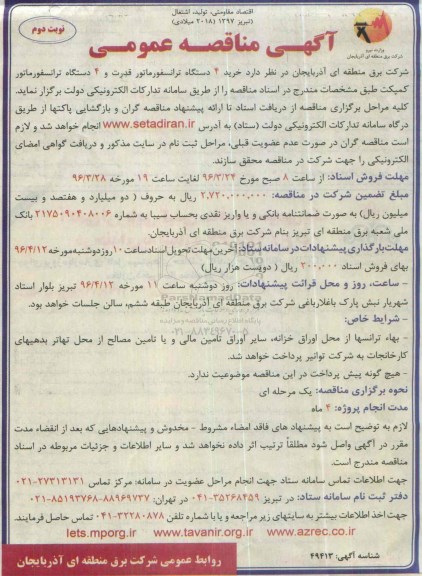 اقتصاد مقاومتی، تولید، اشتغال
(تبریز ۱۳۹۷ (۲۰۱۸ میلادی)
نوبت دوم
آگهی مناقصه عمومی
وزارت نیرو
شرکت برق منطقه ای آذربایجان
شرکت برق منطقه ای آذربایجان در نظر دارد خرید ۴ دستگاه ترانسفورماتور قدرت و ۴ دستگاه ترانسفورماتور
کمپکت طبق مشخصات مندرج در اسناد مناقصه را از طریق سامانه تدارکات الکترونیکی دولت برگزار نماید.
کلیه مراحل برگزاری مناقصه از دریافت اسناد تا ارائه پیشنهاد مناقصه گران و بازگشایی پاکتها از طریق
درگاه سامانه تدارکات الکترونیکی دولت (ستاد) به آدرس www.setadiran.ir انجام خواهد شد و لازم
است مناقصه گران در صورت عدم عضویت قبلی، مراحل ثبت نام در سایت مذکور و دریافت گواهی امضای
الکترونیکی را جهت شرکت در مناقصه محقق سازند.
مهلت فروش اسناد: از ساعت ۸ صبح مورخ ۹۶/۳/۲۴ لغایت ساعت ۱۹ مورخه ۹۶/۳/۲۸
مبلغ تضمین شرکت در مناقصه: ۲,۷۲۰,۰۰۰,۰۰۰ ریال به حروف ( دو میلیارد و هفتصد و بیست
میلیون ریال) به صورت ضمانتنامه بانکی و یا واریز نقدی بحساب سیبا به شماره ۲۱۷۵۰۹۰۴۰۸۰۰۶ بانک
ملی شعبه برق منطقه ای تبریز بنام شرکت برق منطقه ای آذربایجان.
مهلت بارگذاری پیشنهادات در سامانه ستاد: آخرین مهلت تحویل اسناد ساعت ۱۰ روز دوشنبه مورخه ۹۶/۴/۱۲
بهای فروش اسناد ۲۰۰۰۰۰ ریال ( دویست هزار ریال)
- ساعت، روز و محل قرائت پیشنهادات: روز دوشنبه ساعت ۱۱ مورخه ۹۶/۴/۱۲ تبریز بلوار استاد
شهریار نبش پارک باغلارباغی شرکت برق منطقه ای آذربایجان طبقه ششم، سالن جلسات خواهد بود.
- شرایط خاص:
- بهاء ترانسها از محل اوراق خزانه، سایر اوراق تامین مالی و یا تامین مصالح از محل تهاتر بدهیهای
کارخانجات به شرکت توانیر پرداخت خواهد شد.
- هیچ گونه پیش پرداخت در این مناقصه موضوعیت ندارد.
نحوه برگزاری مناقصه: یک مرحله ای
مدت انجام پروژه: ۴ ماه
لازم به توضیح است به پیشنهاد های فاقد امضاء مشروط - مخدوش و پیشنهادهایی که بعد از انقضاء مدت
مقرر در آگهی واصل شود مطلقاً ترتیب اثر داده نخواهد شد و سایر اطلاعات و جزئیات مربوطه در اسناد
مناقصه مندرج است.
جهت اطلاعات تماس سامانه ستاد جهت انجام مراحل عضویت در سامانه: مرکز تماس ۲۷۳۱۳۱۳۱-۰۲۱
دفتر ثبت نام سامانه ستاد: در تبریز ۳۵۲۶۸۴۵۹-۰۴۱ در تهران: ۸۸۹۶۹۷۳۷-۸۵۱۹۳۷۶۸-۰۲۱
جهت اخذ اطلاعات بیشتر به سایتهای زیر مراجعه و یا با شماره تلفن ۳۲۲۸۰۸۷۸-۰۴۱ تماس حاصل فرمایند.
iets.mporg.ir www.tavanir.org.ir www.azrec.co.ir
شناسه آگهی: ۴۹۴۱۳
روابط عمومی شرکت برق منطقه ای آذربایجان